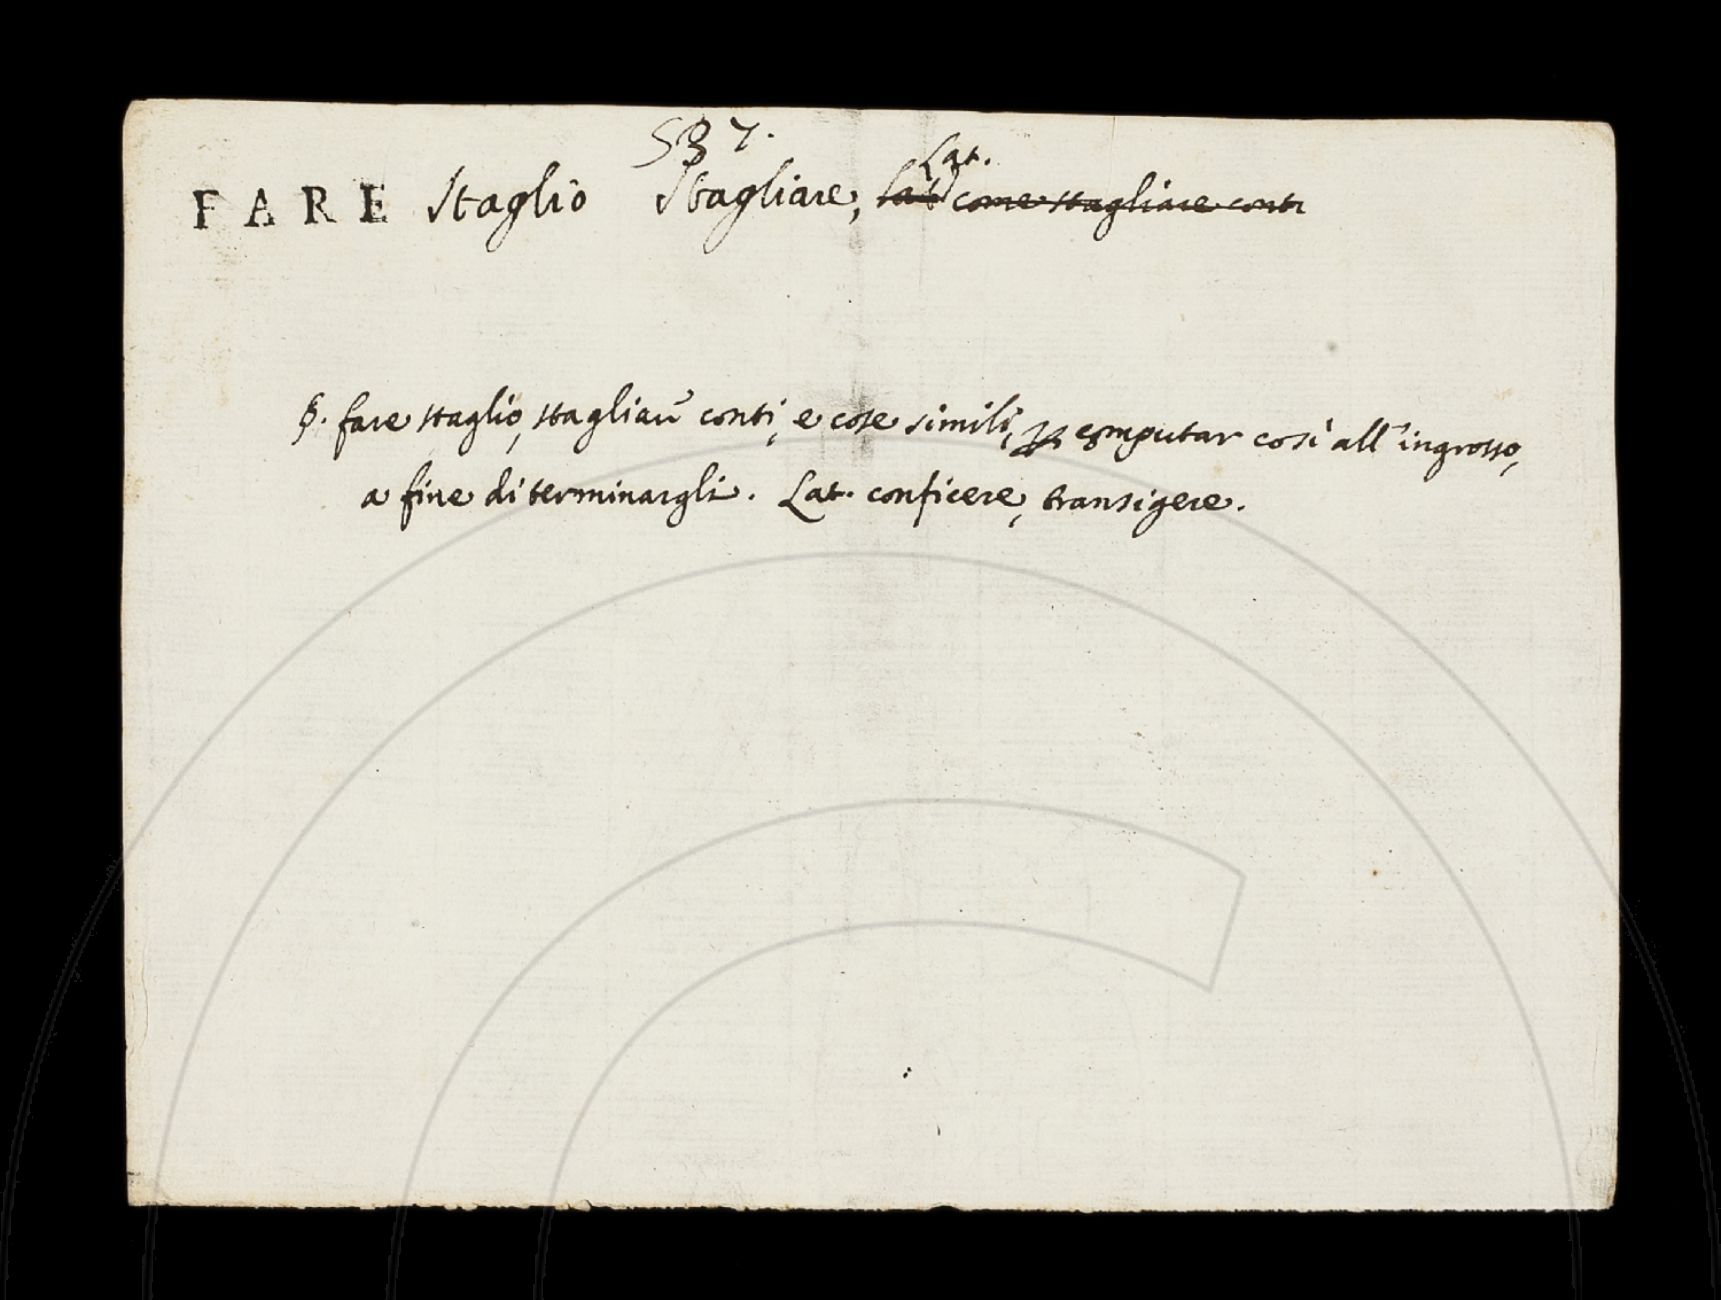 537.
Lat.
FARE Staglio Stagliare, lat come stagliare conti
§. fare staglio, stagliar conti, e cose simili, computar così all'ingrosso,
a fine di terminargli. Lat. conficere, transigere.